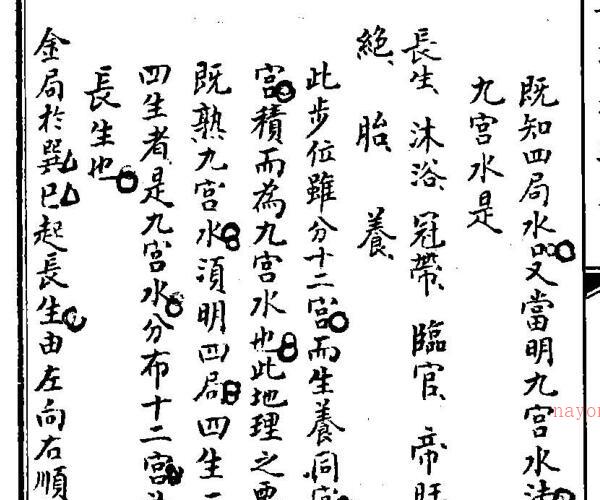 既知四局水口又當明九宮水法
九宮水是
長生 沐浴 冠帶 臨官 帝旺
絕 胎 養
此步位雖分十二宮而生養同宮
宮積而為九宮水也此地理之要
既熟九宮水須明四局四生
四生者是九宮水分布十二宮
長生也
金局於巽巳起長生由左向右順
nayon